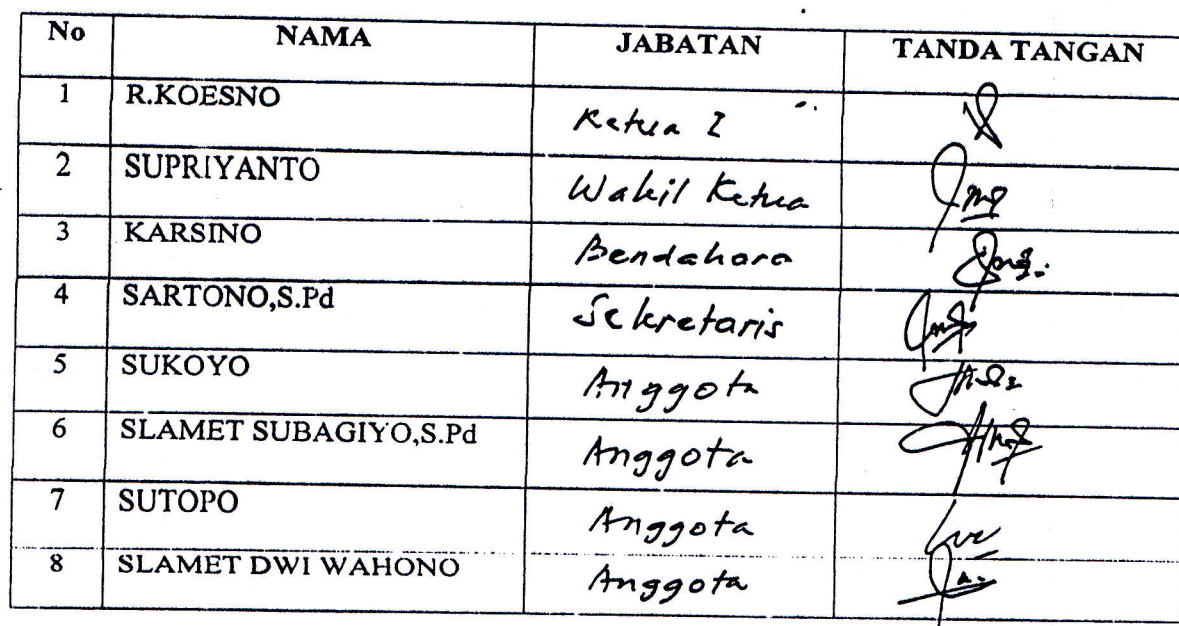 No NAMA JABATAN TANDA TANGAN
1 R.KOESNO Ketua I
2 SUPRIYANTO Wakil Ketua
3 KARSINO Bendahara
4 SARTONO,S.Pd Sekretaris
5 SUKOYO Anggota
6 SLAMET SUBAGIYO,S.Pd Anggota
7 SUTOPO Anggota
8 SLAMET DWI WAHONO Anggota